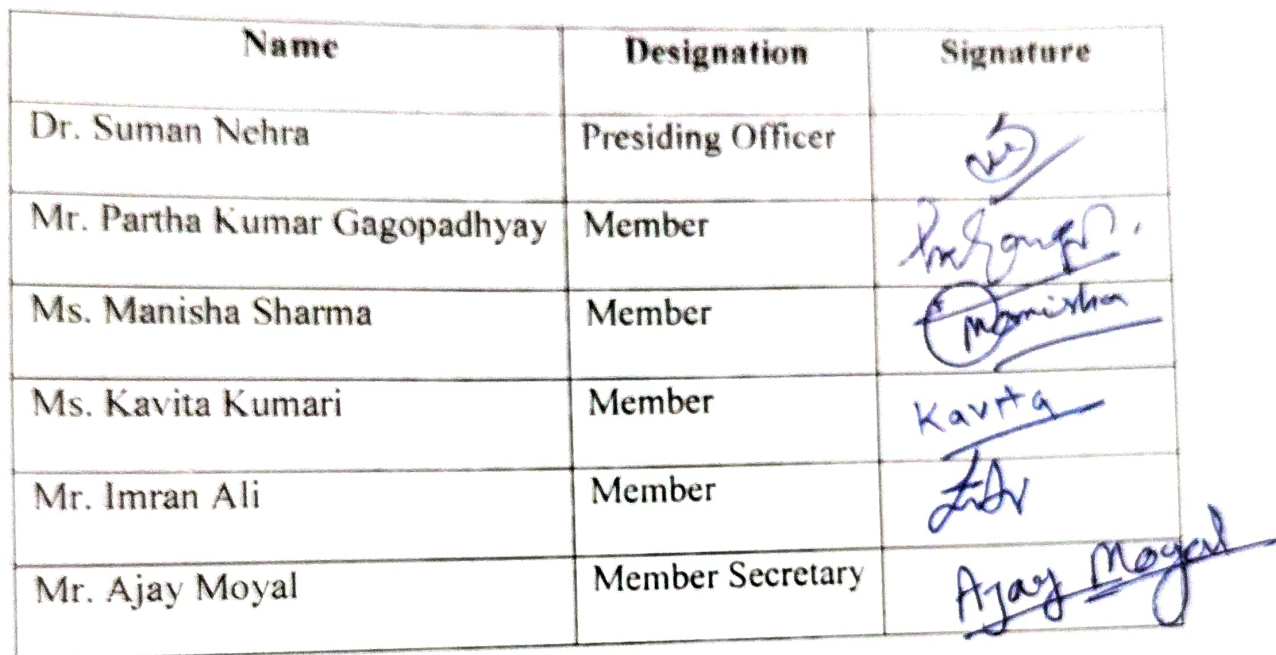 Name Designation Signature
Dr. Suman Nehra Presiding Officer
Mr. Partha Kumar Gagopadhyay Member
Ms. Manisha Sharma Member Manisha
Ms. Kavita Kumari Member Kavita
Mr. Imran Ali Member
Mr. Ajay Moyal Member Secretary Ajay Moyal